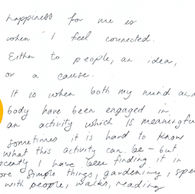 happiness for me is
when I feel connected.
Either to people, an idea,
or a cause.
It is when both my mind an
body have been engaged in
an activity which is meaningfu
sometimes it is hard to know
what this activity can be - but
recently I have been finding it in
more simple things, gardening, spe
with people, walks, reading